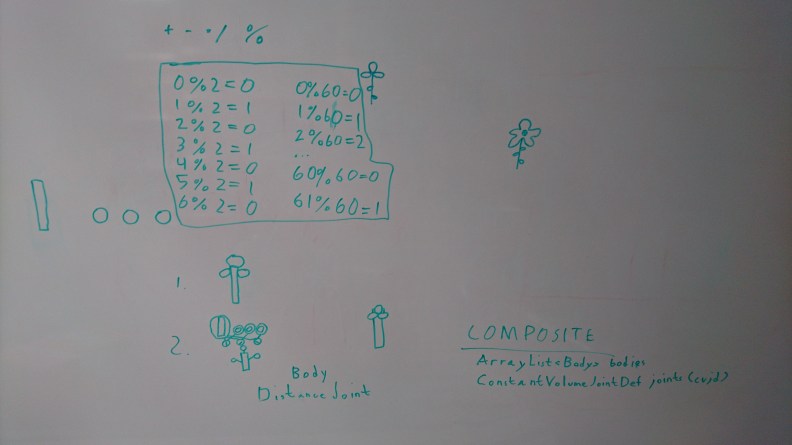 + - · / %
0%2=0
1%2=1
2%2=0
3%2=1
4%2=0
5%2=1
6%2=0
0%60=0
1%60=1
2%60=2
...
60%60=0
61%60=1
1.
2.
Body
DistanceJoint
COMPOSITE
ArrayList<Body> bodies
ConstantVolumeJointDef joints (cvjd)